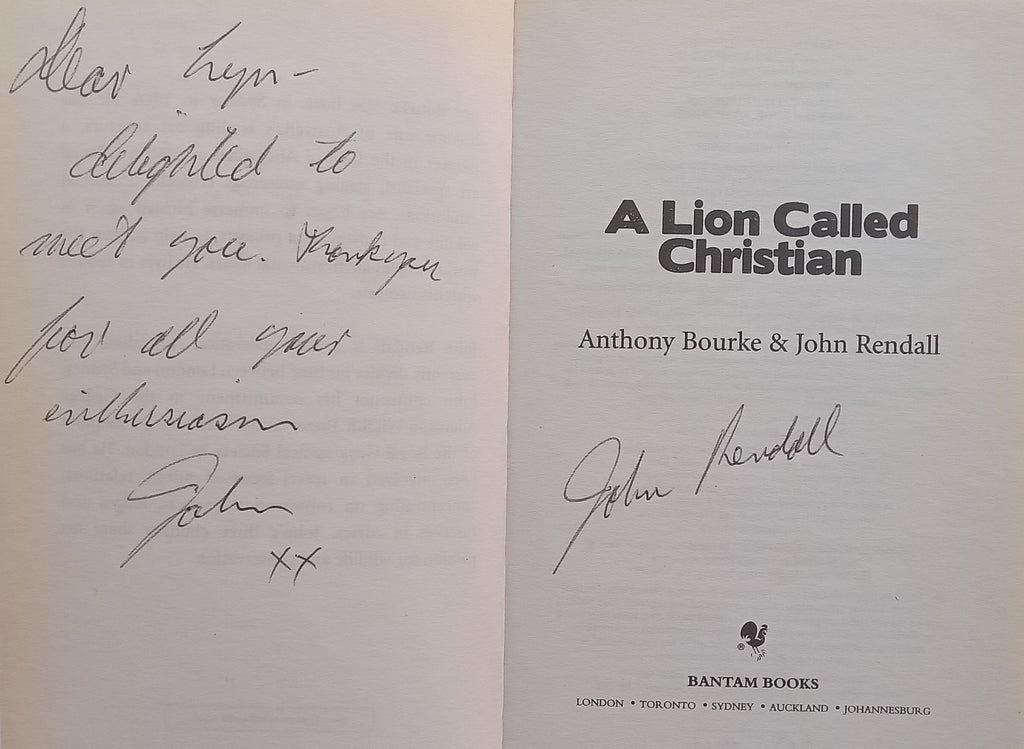 Dear Lyn -
delighted to
meet you. Thankyou
for all your
enthusiasm
John
xx
A Lion Called
Christian
Anthony Bourke & John Rendall
John Rendall
®
BANTAM BOOKS
LONDON • TORONTO • SYDNEY • AUCKLAND • JOHANNESBURG